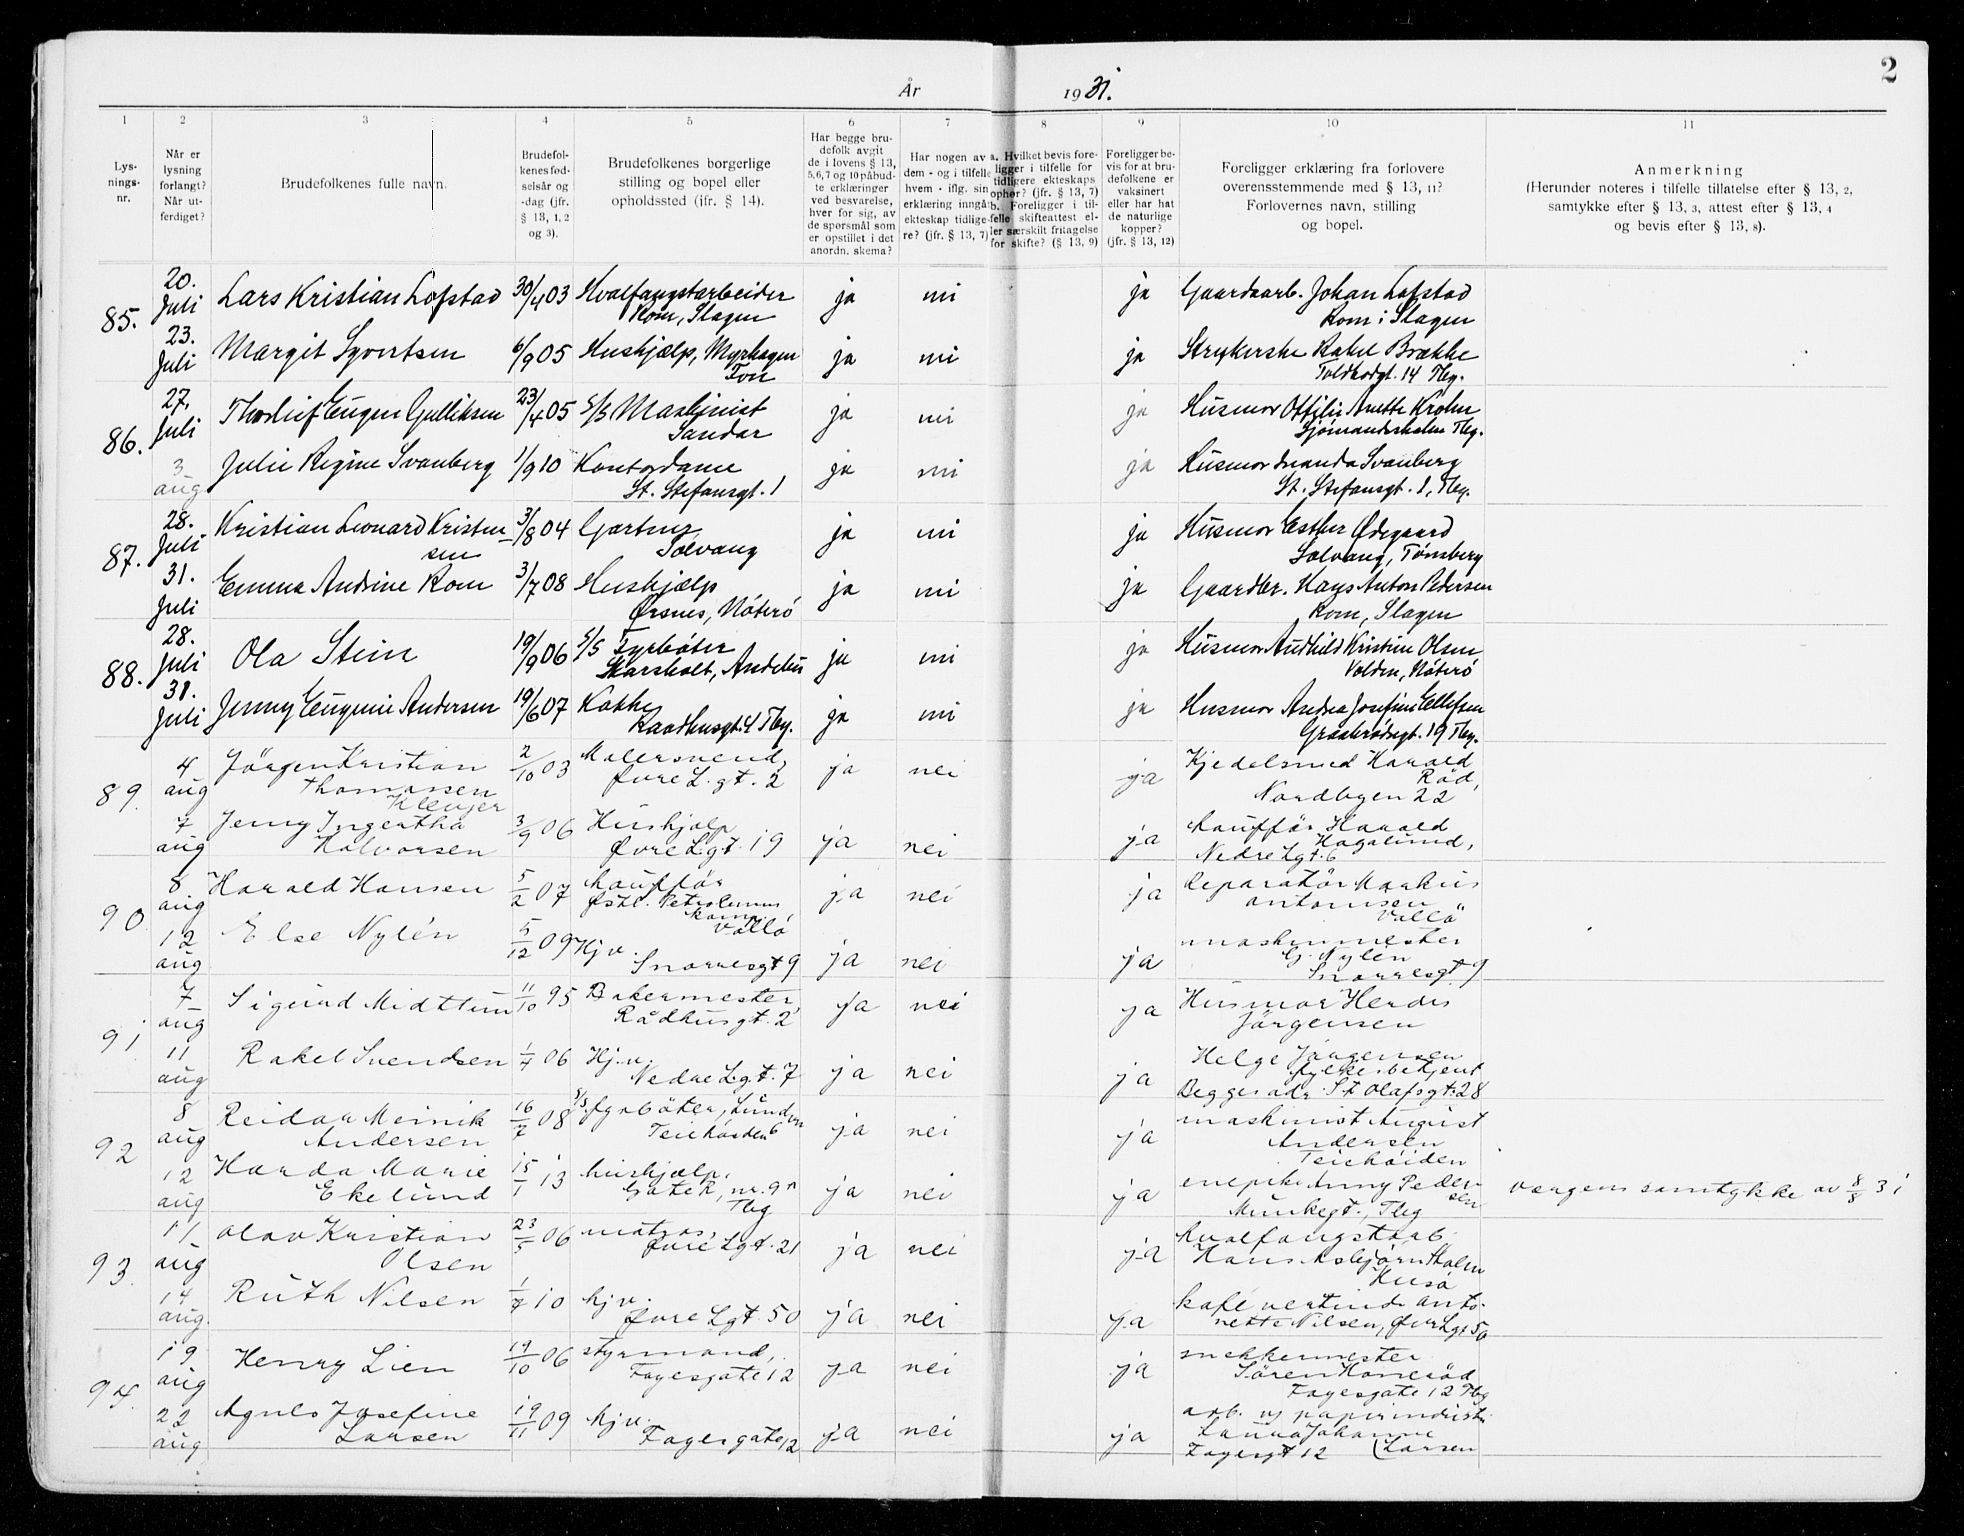 2
År 1931.
1 2 3 4 5 6 7 8 9 10 11
Lys-
nings-
nr.
Når er
lysning
forlangt?
Når ut-
ferdiget?
Brudefolkenes fulle navn.
Brudefol-
kenes fød-
selsår og
-dag (jfr.
§ 13, 1, 2
og 3).
Brudefolkenes borgerlige
stilling og bopel eller
opholdssted (ifr. § 14).
Har begge bru-
defolk avgit
de i lovens § 13,
5,6,7 og 10 påbud-
te erklæringer
ved besvarelse,
hver for sig, av
de spørsmål som
er opstillet i det
anordn. skema?
Har nogen av
dem - og i tilfelle
hvem - iflg. sin
erklæring inngåt
ekteskap tidlige-
re? (jfr. § 13, 7)
a. Hvilket bevis fore-
ligger i tilfelle for
tidligere ekteskaps
ophør? (jfr. § 13, 7)
b. Foreligger i til-
felle skifteattest el-
ler særskilt fritagelse
for skifte? (§ 13, 9)
Foreligger be-
vis for at bru-
defolkene er
vaksinert
eller har hat
de naturlige
kopper?
(jfr. § 13, 12)
Foreligger erklæring fra forlovere
overensstemmende med § 13, 11?
Forlovernes navn, stilling
og bopel.
Anmerkning
(Herunder noteres i tilfelle tillatelse efter § 13, 2,
samtykke efter § 13, 3, attest efter § 13, 4
og bevis efter § 13, 8).
85.
20. Juli Lars Kristian Lofstad 30/4 03 Hvalfangstarbeider ja nei ja Gaardarb. Johan Lofstad
Rom, Slagen Rom i Slagen
23. Juli Margit Syvertsen 6/9 05 Hushjælp, Myrhagen ja nei ja Strykerske Rakel Brække
Fon Toldbodgt. 14 Tbg.
86.
27. Juli Thorleif Eugen Gulliksen 23/4 05 S/S Maskinist ja nei ja Husmor Ottilie Anette Krohn
Sandar Sjømandsskolen Tbg.
3 aug Julie Regine Svanberg 1/9 10 Kontordame ja nei ja Husmor Svanberg
St. Stefansgt. 1 St. Stefansgt. 1, Tbg.
87.
28. Juli Kristian Leonard Kristen- 3/8 04 Gartner ja nei ja Husmor Esther Ødegaard
sen Solvang Solvang, Tønsberg
31. Juli Emma Andrine Rom 3/7 08 Hushjælp ja nei ja Gaardbr. Hans Anton Pedersen
Ørsnes, Nøterö Rom, Slagen
88.
28. Juli Ola Stein 19/9 06 S/S Fyrböter ja nei ja Husmor Audhild Kristine Olsen
Skarsholt, Andebu Volden, Nöterö
31. Juli Jenny Eugenie Andersen 19/6 07 Kokke ja nei ja Husmor Andrea Josefine Ellefsen
Raadhusgt. 4 Tbg. Graabrödregt. 19 Tbg.
89.
4 aug Jörgen Kristian 2/10 03 Malersvend, ja nei ja Kjedelsmed Harald
Thomassen Øvre L. gt. 2 Röd,
Klevjer Nordbyen 22
7 aug Jenny Ingertha 3/9 06 Hushjelp ja nei ja Chauffør Harald
Halvorsen Øvre Lgt. 19 Hagalund,
Nedre Lgt. 6
90
8 aug Harald Hansen 5/2 07 Chauffør ja nei ja Reparatör Markus
Østl. Petroleums Antonsen
komp. Vallö Vallö
12 aug Else Nylén 5/12 09 Hj v. ja nei ja maskinmester
Snorresgt 9 G. Nylén
Snorresgt. 9
91
7 aug Sigurd Midttun 11/10 95 Bakermester, ja nei ja Husmor Herdis
Rådhusgt. 2 Jörgensen
11 aug Rakel Svendsen 1/4 06 Hj. v. ja nei ja Helge Jörgensen
Nedre Lgt. 7 fylkesbetjent
Begges adr. St Olafsgt. 28
92
8 aug Reidar Meinik 16/7 08 S/S. fyrböter, Lunden ja nei ja maskinist August
Andersen Teiehöiden 6 Andersen
Teiehöiden
12 aug Harda Marie 15/1 13 hushjælp, ja nei ja enefrk Anny Peder-
Ekelund Gate R, nr. 9 sen
Tbg Munkegt., Tbg
værgens samtykke av 8/8 31
93
11 aug Olav Kristian 23/5 06 matros, ja nei ja hvalfangstarb.
Olsen Øvre Lgt. 21 Hans Asbjørn Holm
Husö
14 aug. Ruth Nilsen 1/7 10 hj v. ja nei ja kafévertinde Anto-
Øvre Lgt. 50 nette Nilsen, Øvr Lgt 50
94.
19 aug Henry Lien 19/10 06 styrmand, ja nei ja snekkermester
Fayesgate 12 Sören Haneröd
Fayesgate 12 Tbg
22 aug Agnes Josefine 19/11 09 hj v. ja nei ja arb. v/ papirindustri
Larsen Fayesgate 12 Laura Johanne
Fayesgt 12 (Larsen